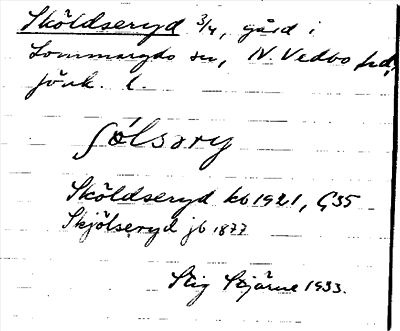 Sköldseryd 3/4, gård i
Lommaryds sn, N. Vedbo hd,
Jönk. l.
ʃólsəry
Sköldseryd kb 1921, G35
Skjölseryd jb 1877
Stig Stjärne 1933.